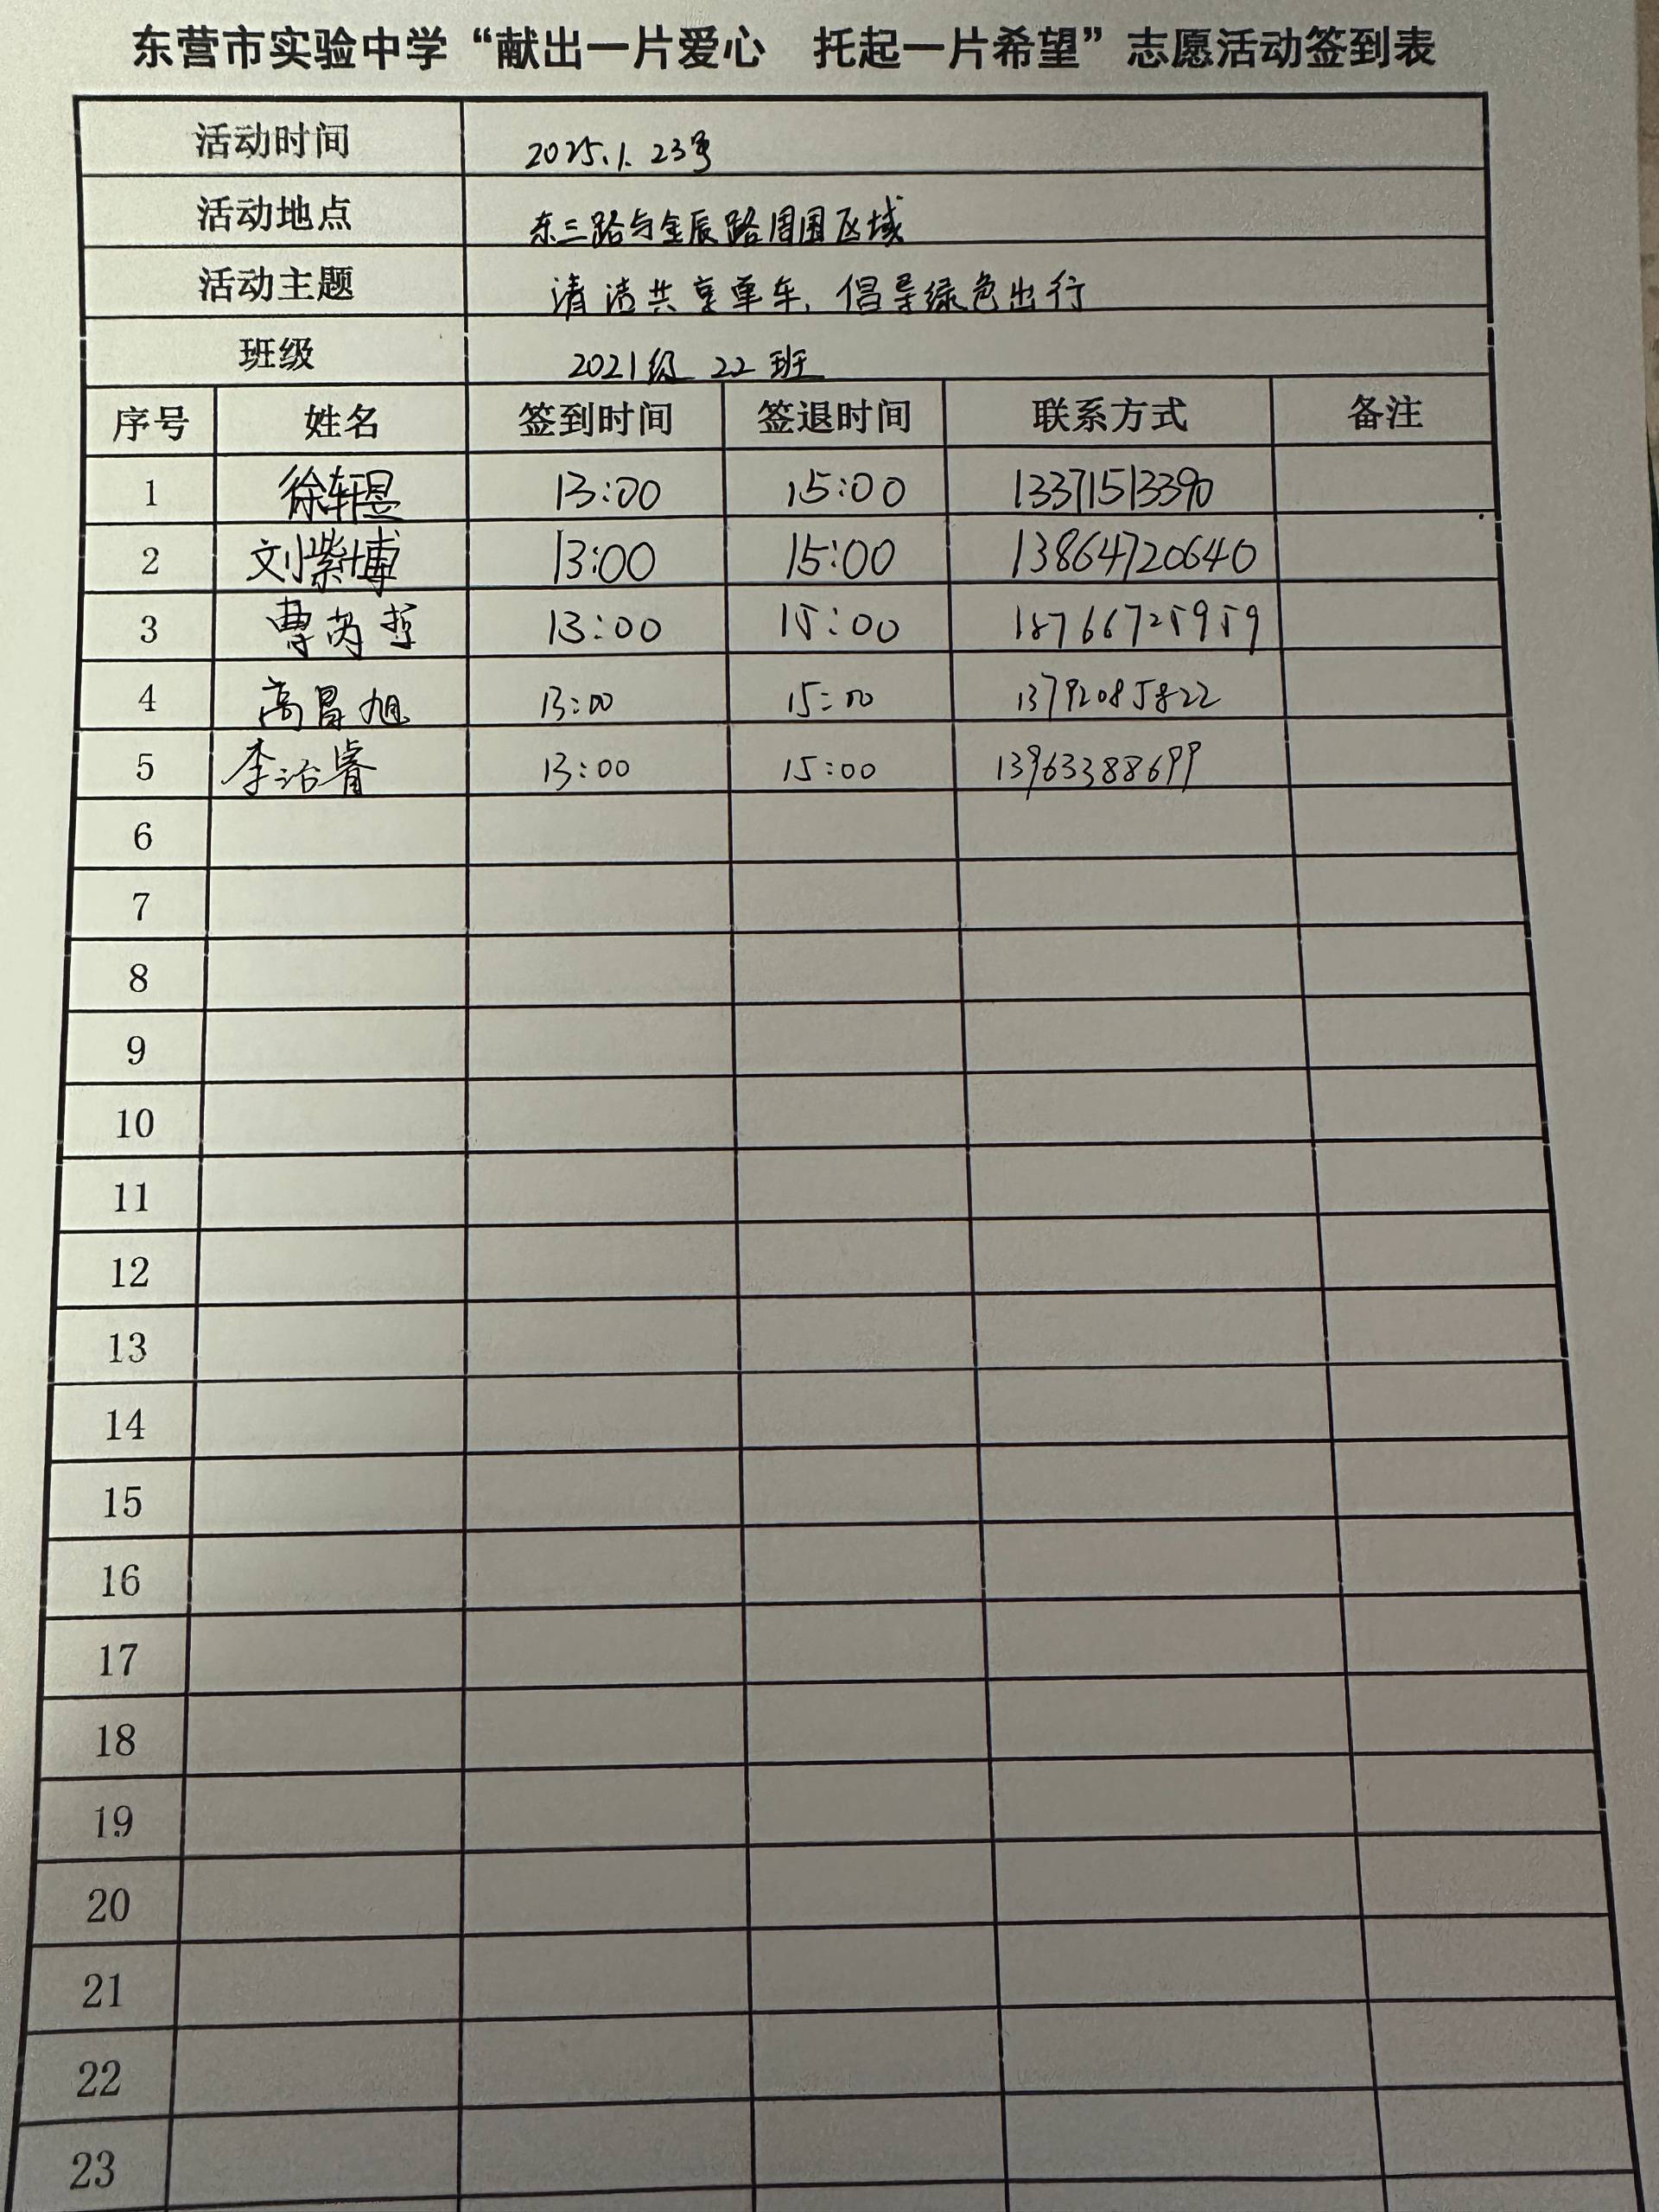 东营市实验中学“献出一片爱心 托起一片希望”志愿活动签到表
活动时间 2025.1.23号
活动地点 东三路与金辰路周围区域
活动主题 清洁共享单车,倡导绿色出行
班级 2021级 22班
序号 姓名 签到时间 签退时间 联系方式 备注
1 徐轩昱 13:00 15:00 13371513390
2 刘紫博 13:00 15:00 13864720640
3 曹芮哲 13:00 15:00 18766725959
4 高昌旭 13:00 15:00 13792085822
5 李治睿 13:00 15:00 13963388699
6
7
8
9
10
11
12
13
14
15
16
17
18
19
20
21
22
23